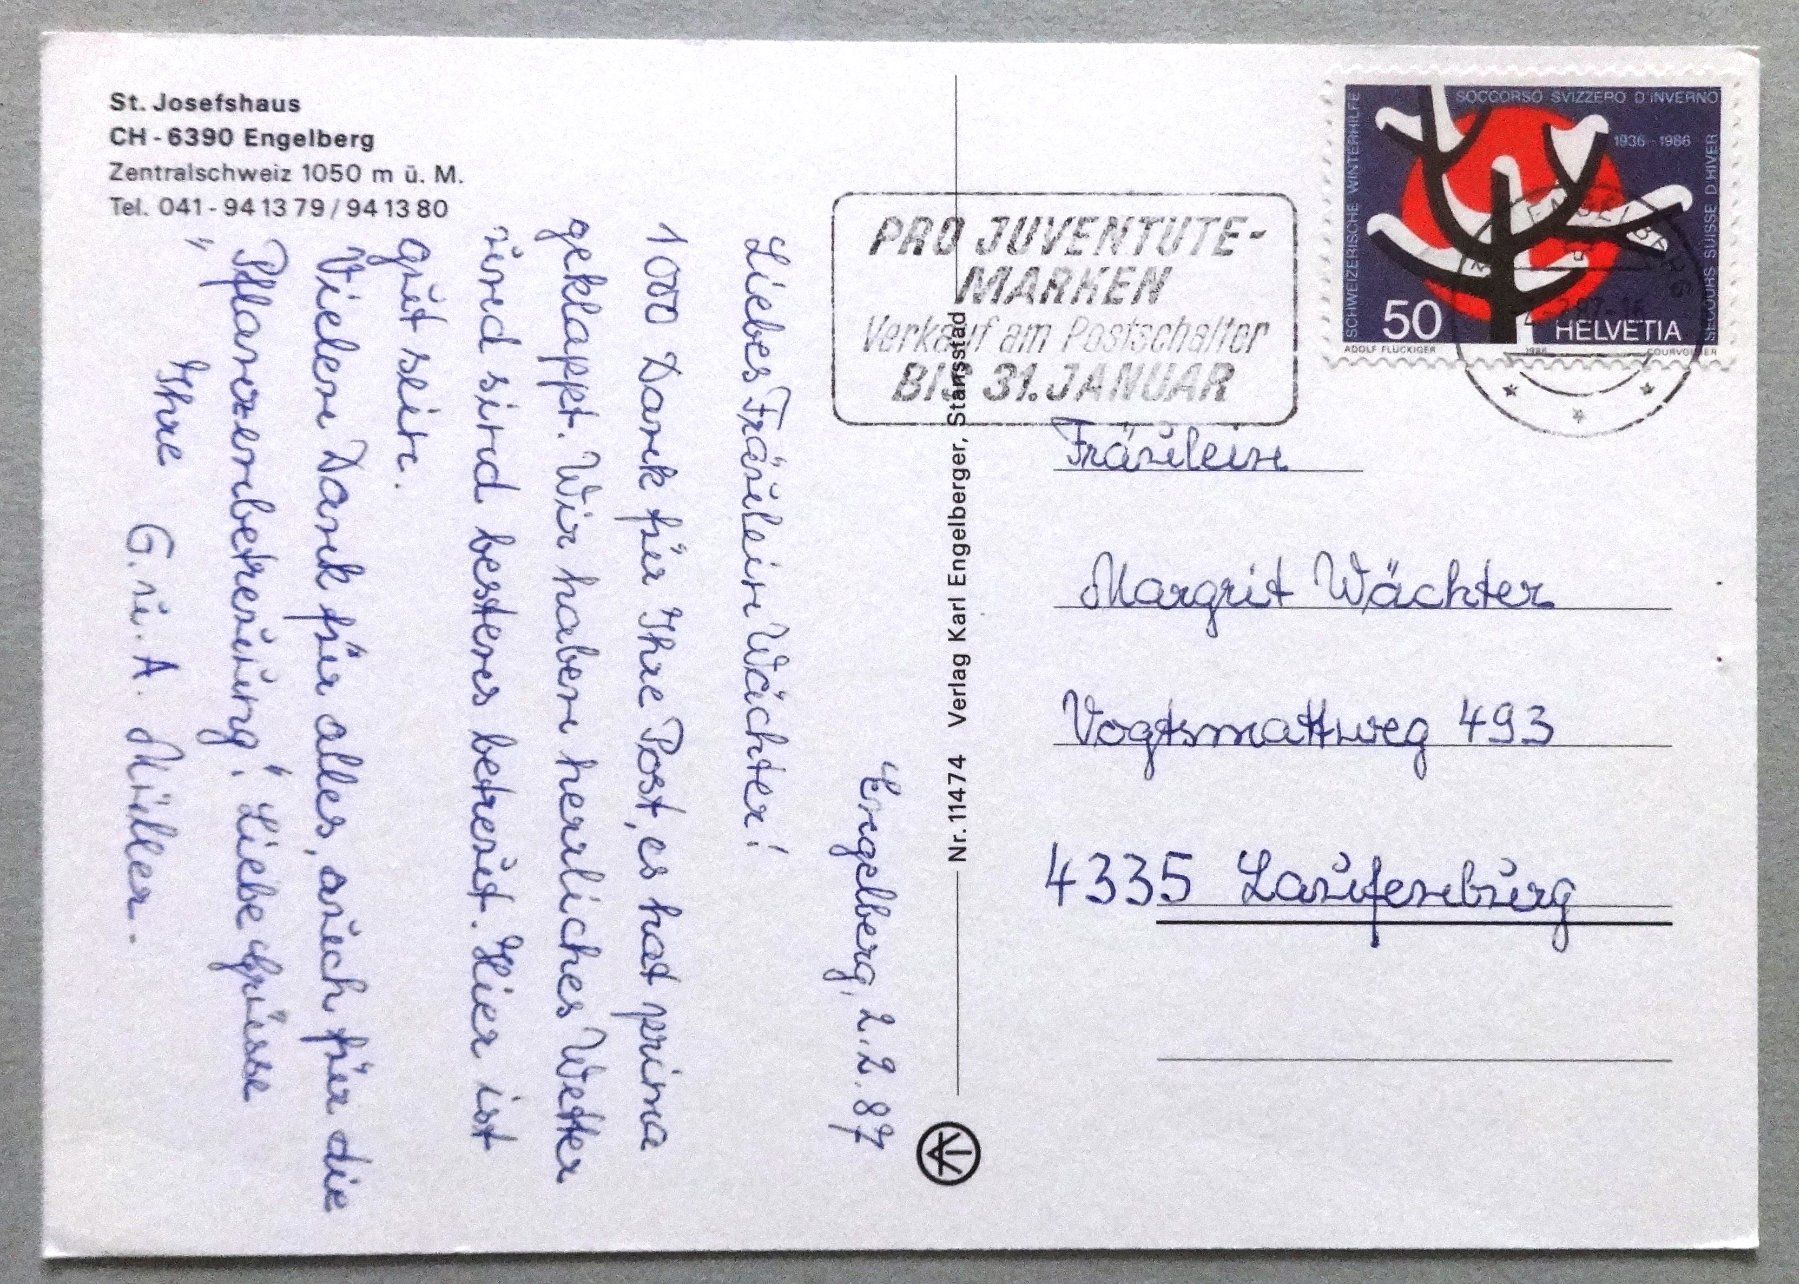 St. Josefshaus
CH - 6390 Engelberg
Zentralschweiz 1050 m ü. M.
Tel. 041 - 94 13 79 / 94 13 80
Engelberg, 2.2.87
Liebes Fräulein Wächter!
1000 Dank für Ihre Post, es hat prima
geklappt. Wir haben herrliches Wetter
und sind bestens betreut. Hier ist
gut sein.
Vielen Dank für alles, auch für die
"Pflanzenbetreuung". Liebe Grüsse
Ihre G. u. A. Müller.
Nr. 11474 Verlag Karl Engelberger, Stansstad
PRO JUVENTUTE-
MARKEN
Verkauf am Postschalter
BIS 31. JANUAR
SCHWEIZERISCHE WINTERHILFE
SOCCORSO SVIZZERO D'INVERNO
1936 - 1986
SECOURS SUISSE D'HIVER
50
HELVETIA
ADOLF FLÜCKIGER 1986 COURVOISIER
ENGELBERG
Fräulein
Margrit Wächter
Vogtsmattweg 493
4335 Laufenburg